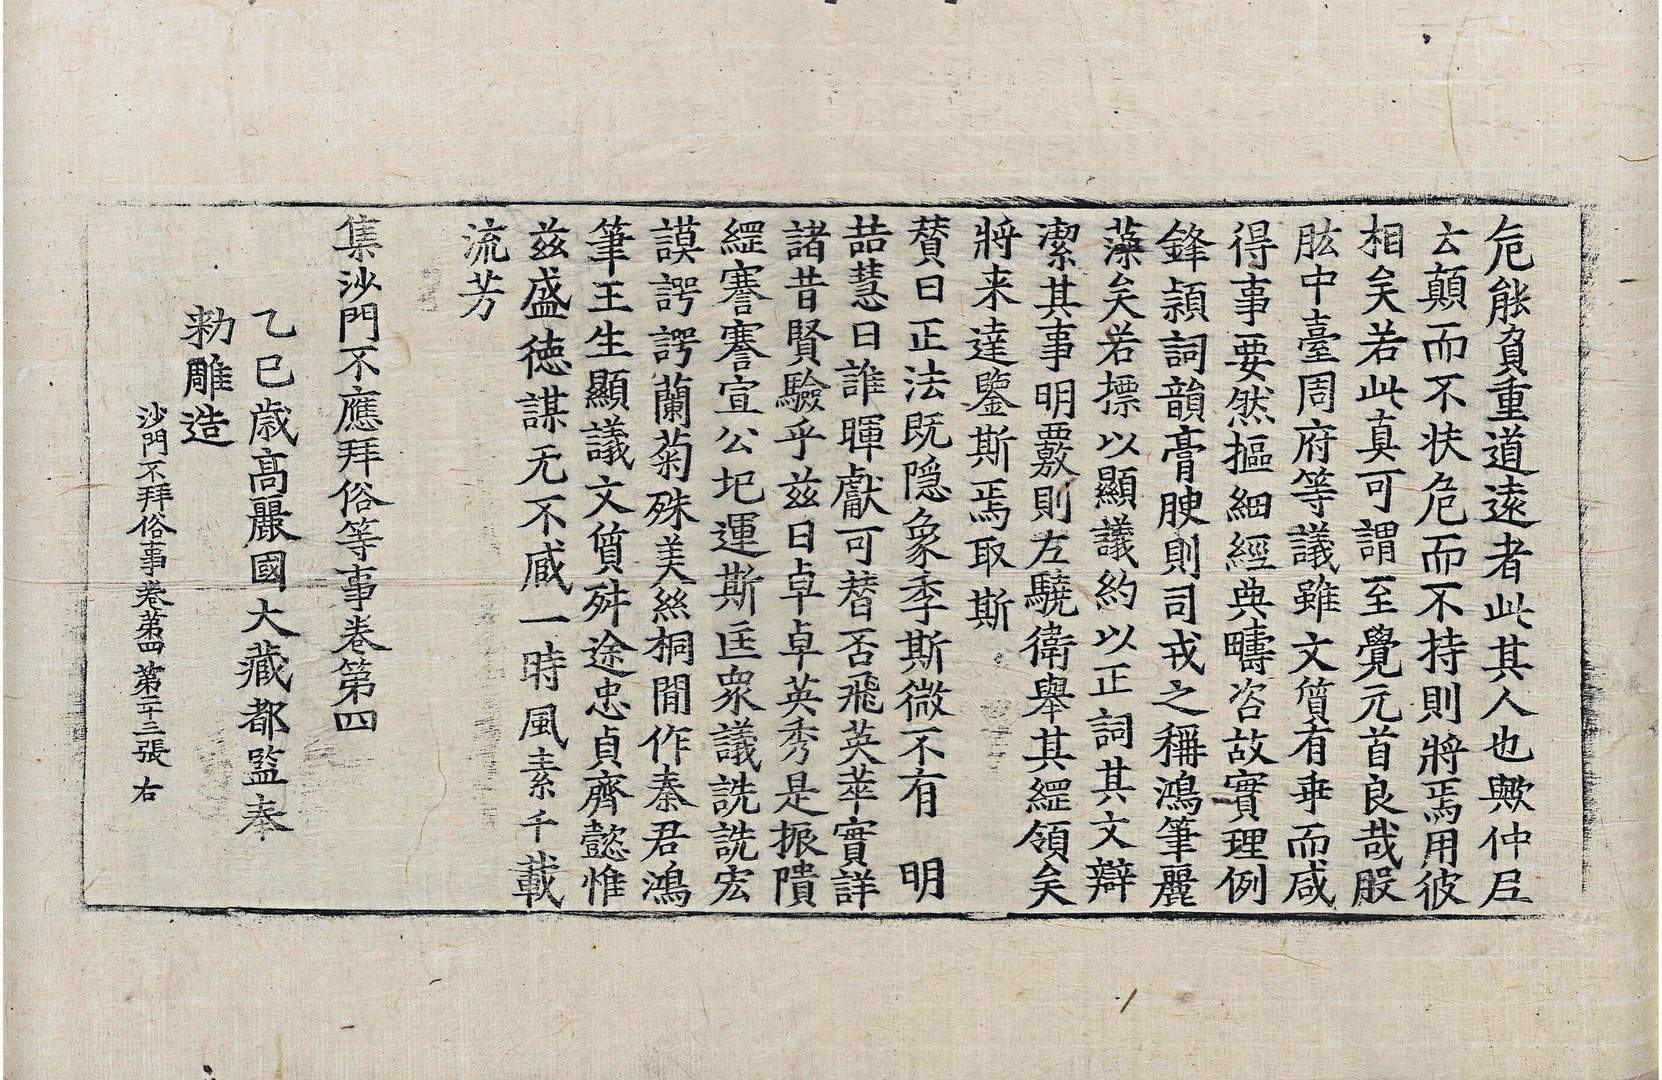 危能負重道遠者此其人也歟仲丘
云顛而不扶危而不持則將焉用彼
相矣若此真可謂至覺元首良哉股
肱中臺周府等議雖文質有乖而咸
得事要然摳細經典疇咨故實理例
鋒頴詞韻膏腴則司戎之稱鴻筆麗
藻矣若摽以顯議約以正詞其文辯
潔其事明覈則左驍衛舉其經領矣
將来達鑒斯焉取斯
賛曰正法既隐象季斯微不有　明
喆慧日誰暉獻可替否飛英莘實詳
諸昔賢驗乎兹日卓卓英秀是振隤
經謇謇宣公圯運斯匡衆議詵詵宏
謨諤諤蘭菊殊美絲桐閒作秦君鴻
筆王生顯議文質舛途忠貞齊懿惟
兹盛徳謀无不感一時風素千載
流芳
集沙門不應拜俗等事卷第四
乙巳歲高麗國大藏都監奉
勑雕造
沙門不拜俗事卷第四　第二十三張　右